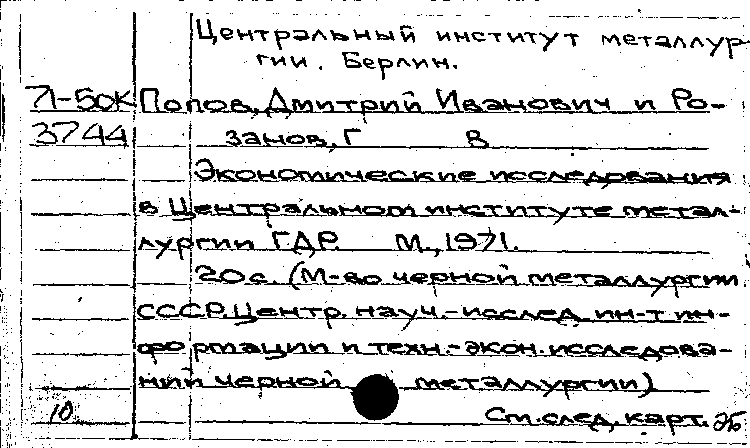 Центральный институт металлур
гии. Берлин.
71-5ок Попов, Дмитрий Иванович и Ро-
3744 занов, Г В
Экономические исследования
в Центральном институте метал-
лургии ГДР. М., 1971.
20с. (М-во черной металлургии
СССР. Центр. науч.-исслед. ин-т ин-
формации и техн.-экон. исследова-
ний черной металлургии)
10 См. след. карт.